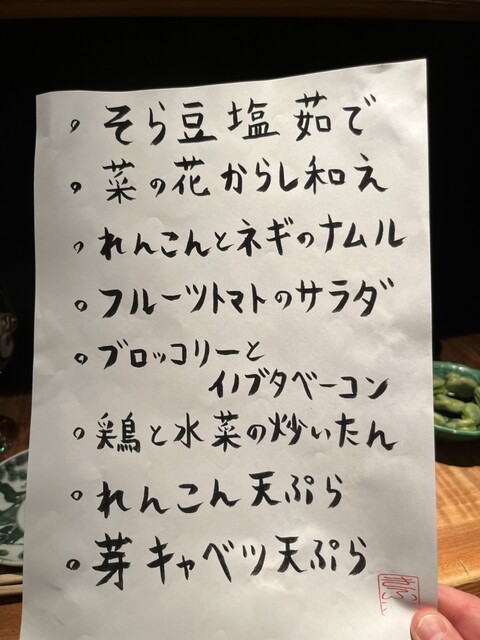 。そら豆塩茹で
。菜の花からし和え
。れんこんとネギのナムル
。フルーツトマトのサラダ
。ブロッコリーと
イノブタベーコン
。鶏と水菜の炒いたん
。れんこん天ぷら
。芽キャベツ天ぷら